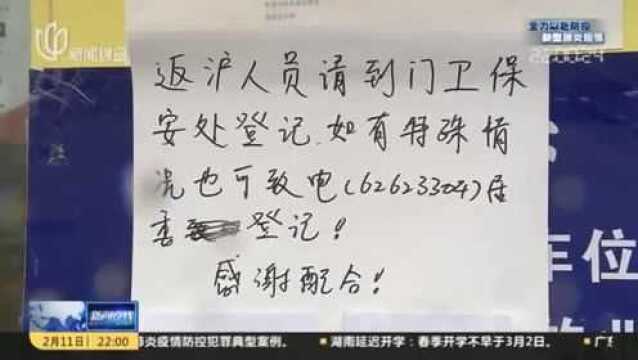 新闻综合
全力以赴防控
新型肺炎疫情
22:00:24
返沪人员请到门卫保
安处登记.如有特殊情
况也可致电(62623304)居
委登记!
感谢配合!
车位
2月11日 22:00
肺炎疫情防控犯罪典型案例。 ■ 湖南延迟开学:春季开学不早于3月2日。 ■ 广